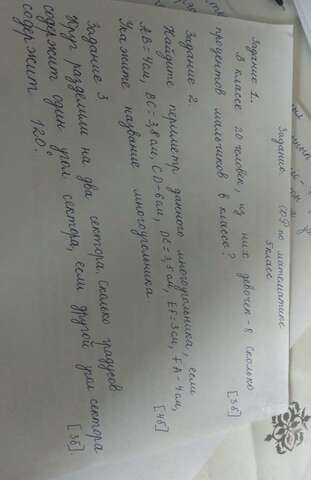 Задания СОР по математике
5 класс
Задание 1.
В классе 20 человек, из них девочек - 8 Сколько
процентов мальчиков в классе?
[3б]
Задание 2.
Найдите периметр данного многоугольника, если
AB=4см, BC=3,8см, CD=6см, DE=3,5см, EF=3см, FA=4см,
Укажите название многоугольника.
[4б]
Задание 3
Круг разделили на два сектора. Сколько градусов
содержит один угол сектора, если другой угол сектора
содержит 120°
[3б]